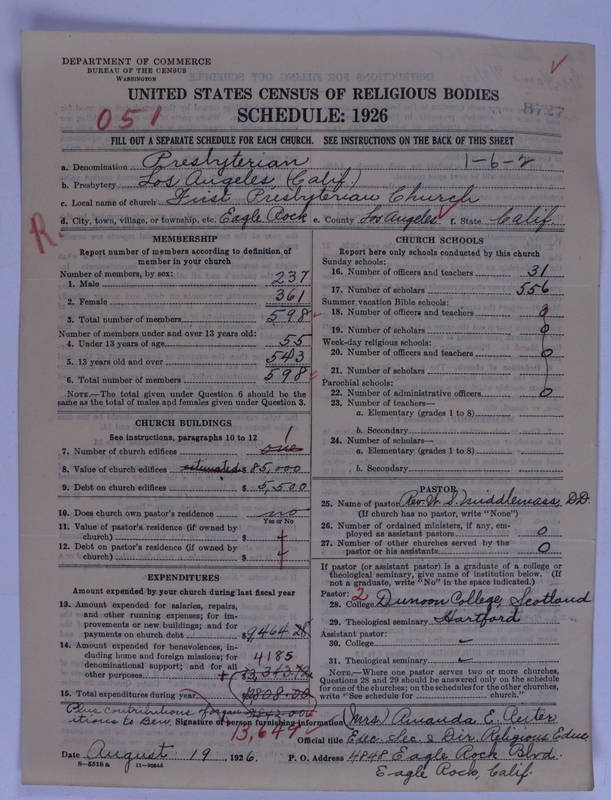 DEPARTMENT OF COMMERCE
BUREAU OF THE CENSUS
WASHINGTON
UNITED STATES CENSUS OF RELIGIOUS BODIES
8727
051
SCHEDULE: 1926
FILL OUT A SEPARATE SCHEDULE FOR EACH CHURCH. SEE INSTRUCTIONS ON THE BACK OF THIS SHEET
a. Denomination Presbyterian 1-6-2
b. Presbytery Los Angeles, (Calif.)
c. Local name of church First Presbyterian Church
d. City, town, village, or township, etc. Eagle Rock e. County Los Angeles f. State Calif.
R.
MEMBERSHIP
Report number of members according to definition of
member in your church
Number of members, by sex:
1. Male 237
2. Female 361
3. Total number of members 598
Number of members under and over 13 years old:
4. Under 13 years of age 55
5. 13 years old and over 543
6. Total number of members 598
NOTE.—The total given under Question 6 should be the
same as the total of males and females given under Question 3.
CHURCH BUILDINGS
See instructions, paragraphs 10 to 12
1
7. Number of church edifices one
8. Value of church edifices estimated $ 85,000
9. Debt on church edifices $ 5,500
10. Does church own pastor's residence? no
Yes or No
11. Value of pastor's residence (if owned by
church) $
12. Debt on pastor's residence (if owned by
church) $
EXPENDITURES
Amount expended by your church during last fiscal year
13. Amount expended for salaries, repairs,
and other running expenses; for im-
provements or new buildings; and for
payments on church debt $ 9464.28
14. Amount expended for benevolences, in-
cluding home and foreign missions; for
denominational support; and for all
other purposes 4185
15. Total expenditures during year
Plus contributions
13,649
CHURCH SCHOOLS
Report here only schools conducted by this church
Sunday schools:
16. Number of officers and teachers 31
17. Number of scholars 556
Summer vacation Bible schools:
18. Number of officers and teachers 0
19. Number of scholars 0
Week-day religious schools:
20. Number of officers and teachers 0
21. Number of scholars
Parochial schools:
22. Number of administrative officers 0
23. Number of teachers—
a. Elementary (grades 1 to 8)
b. Secondary
24. Number of scholars—
a. Elementary (grades 1 to 8)
b. Secondary
PASTOR
25. Name of pastor Rev. W. S. Middlemass, D.D.
(If church has no pastor, write "None")
26. Number of ordained ministers, if any, em-
ployed as assistant pastors 0
27. Number of other churches served by the
pastor or his assistants 0
If pastor (or assistant pastor) is a graduate of a college or
theological seminary, give name of institution below. (If
not a graduate, write "No" in the space indicated.)
Pastor: 2
28. College Dunoon College, Scotland
29. Theological seminary Hartford
Assistant pastor:
30. College
31. Theological seminary
NOTE.—Where one pastor serves two or more churches,
Questions 28 and 29 should be answered only on the schedule
for one of the churches; on the schedules for the other churches,
write "See schedule for church."
Signature of person furnishing information (Mrs) Amanda E. Reiter
Official title Exec. Sec. & Dir. Religious Educ.
Date August 19, 1926. P. O. Address 4848 Eagle Rock Blvd.
8-5318 a
Eagle Rock, Calif.